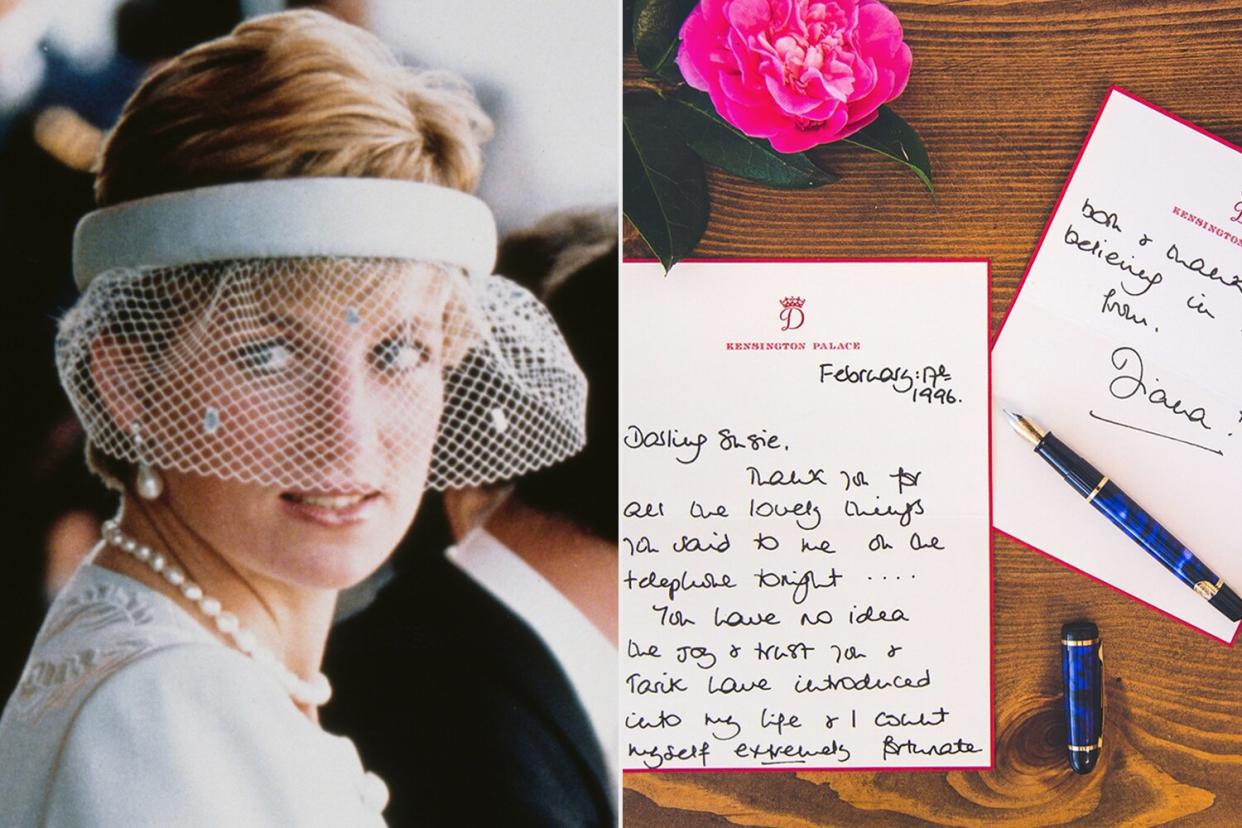 D
KENSINGTON PALACE
February: 17th
1996.
Darling Susie,
Thank you for
all the lovely things
you said to me on the
telephone tonight ....
You have no idea
the joy & trust you &
Tarik have introduced
into my life & I count
myself extremely fortunate
KENSINGTON
both & thank
believing in
from.
Diana